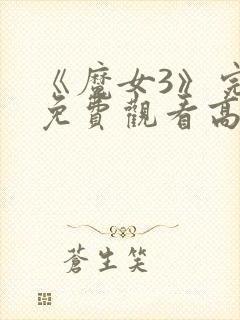 《魔女3》完
免費觀看高
蒼生笑